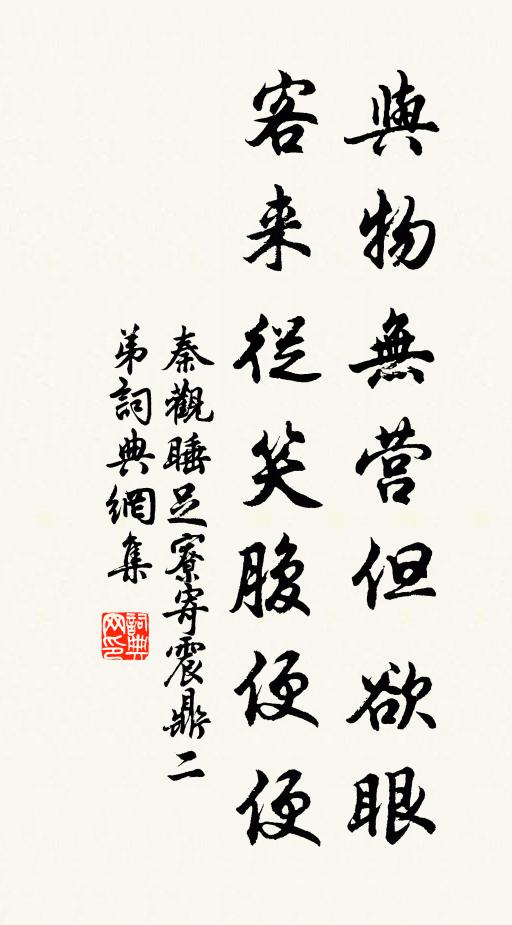 與物無营但欲眠
客来從笑腹便便
秦觀睡足寮寄震鼎二
弟詞典網集
詞典
网印